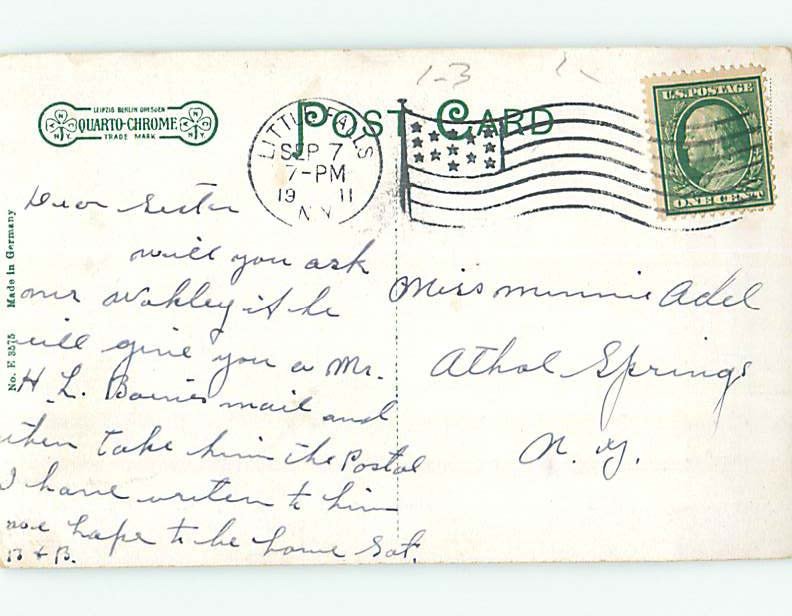 1-3
POST CARD
LEIPZIG BERLIN DRESDEN
QUARTO-CHROME
TRADE MARK
LITTLE FALLS
SEP 7
7-PM
19 11
N.Y.
U.S. POSTAGE
ONE CENT
Made in Germany
No. E 3575
Dear Sister
will you ask
mr Wakley if he
will give you a Mr.
H. L. mail and
then take him the Postal
I have writen to him
we hope to be home Sat.
B & B.
Miss minnie Adel
Athol Springs
N. Y.